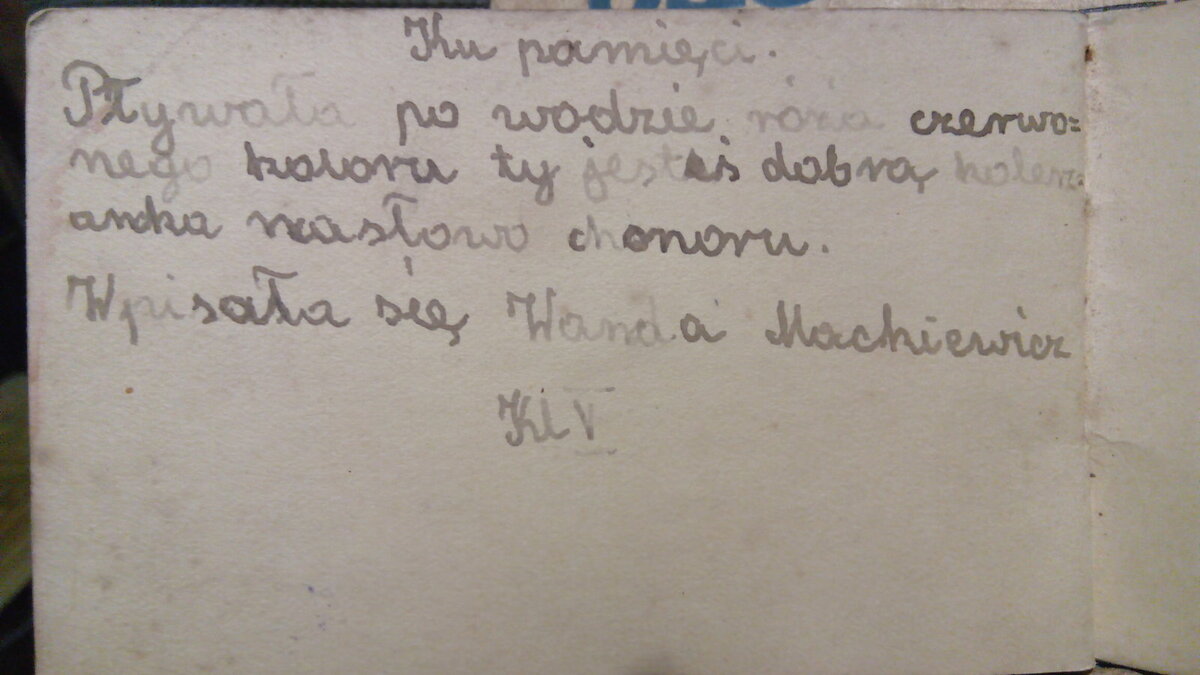 Ku pamięci.
Pływała po wodzie róża czerwo=
nego koloru ty jesteś dobrą koleż=
anka nasłowo chonoru.
Wpisała się Wanda Mackiewicz
Kl V